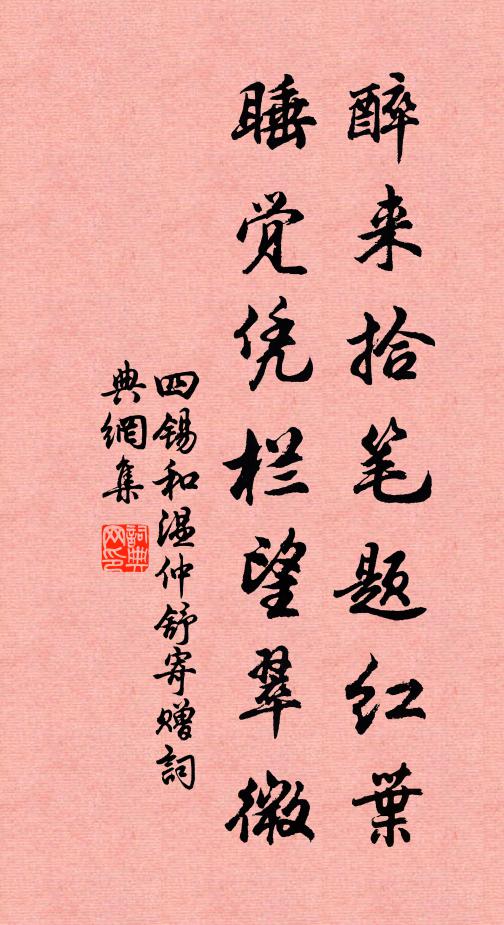 醉来拾笔题红葉
睡觉凭栏望翠微
四锡和温仲舒寄赠詞
典網集
詞典網印